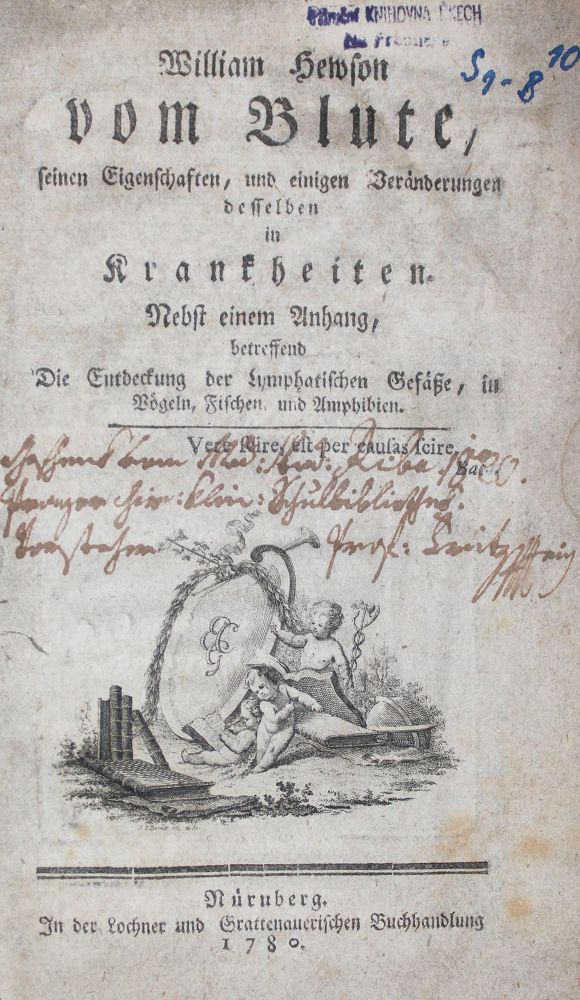 KNIHOVNA
S9-8 10
William Hewſon
vom Blute,
ſeinen Eigenſchaften, und einigen Veränderungen
deſſelben
in
Krankheiten.
Nebſt einem Anhang,
betreffend
Die Entdeckung der Lymphatiſchen Gefäße, in
Vögeln, Fiſchen, und Amphibien.
Vere ſcire, eſt per cauſas ſcire.
Prager chir: klin: Schulbibliothek.
Vorsteher Prof:
Nürnberg.
In der Lochner und Grattenaueriſchen Buchhandlung
1780.